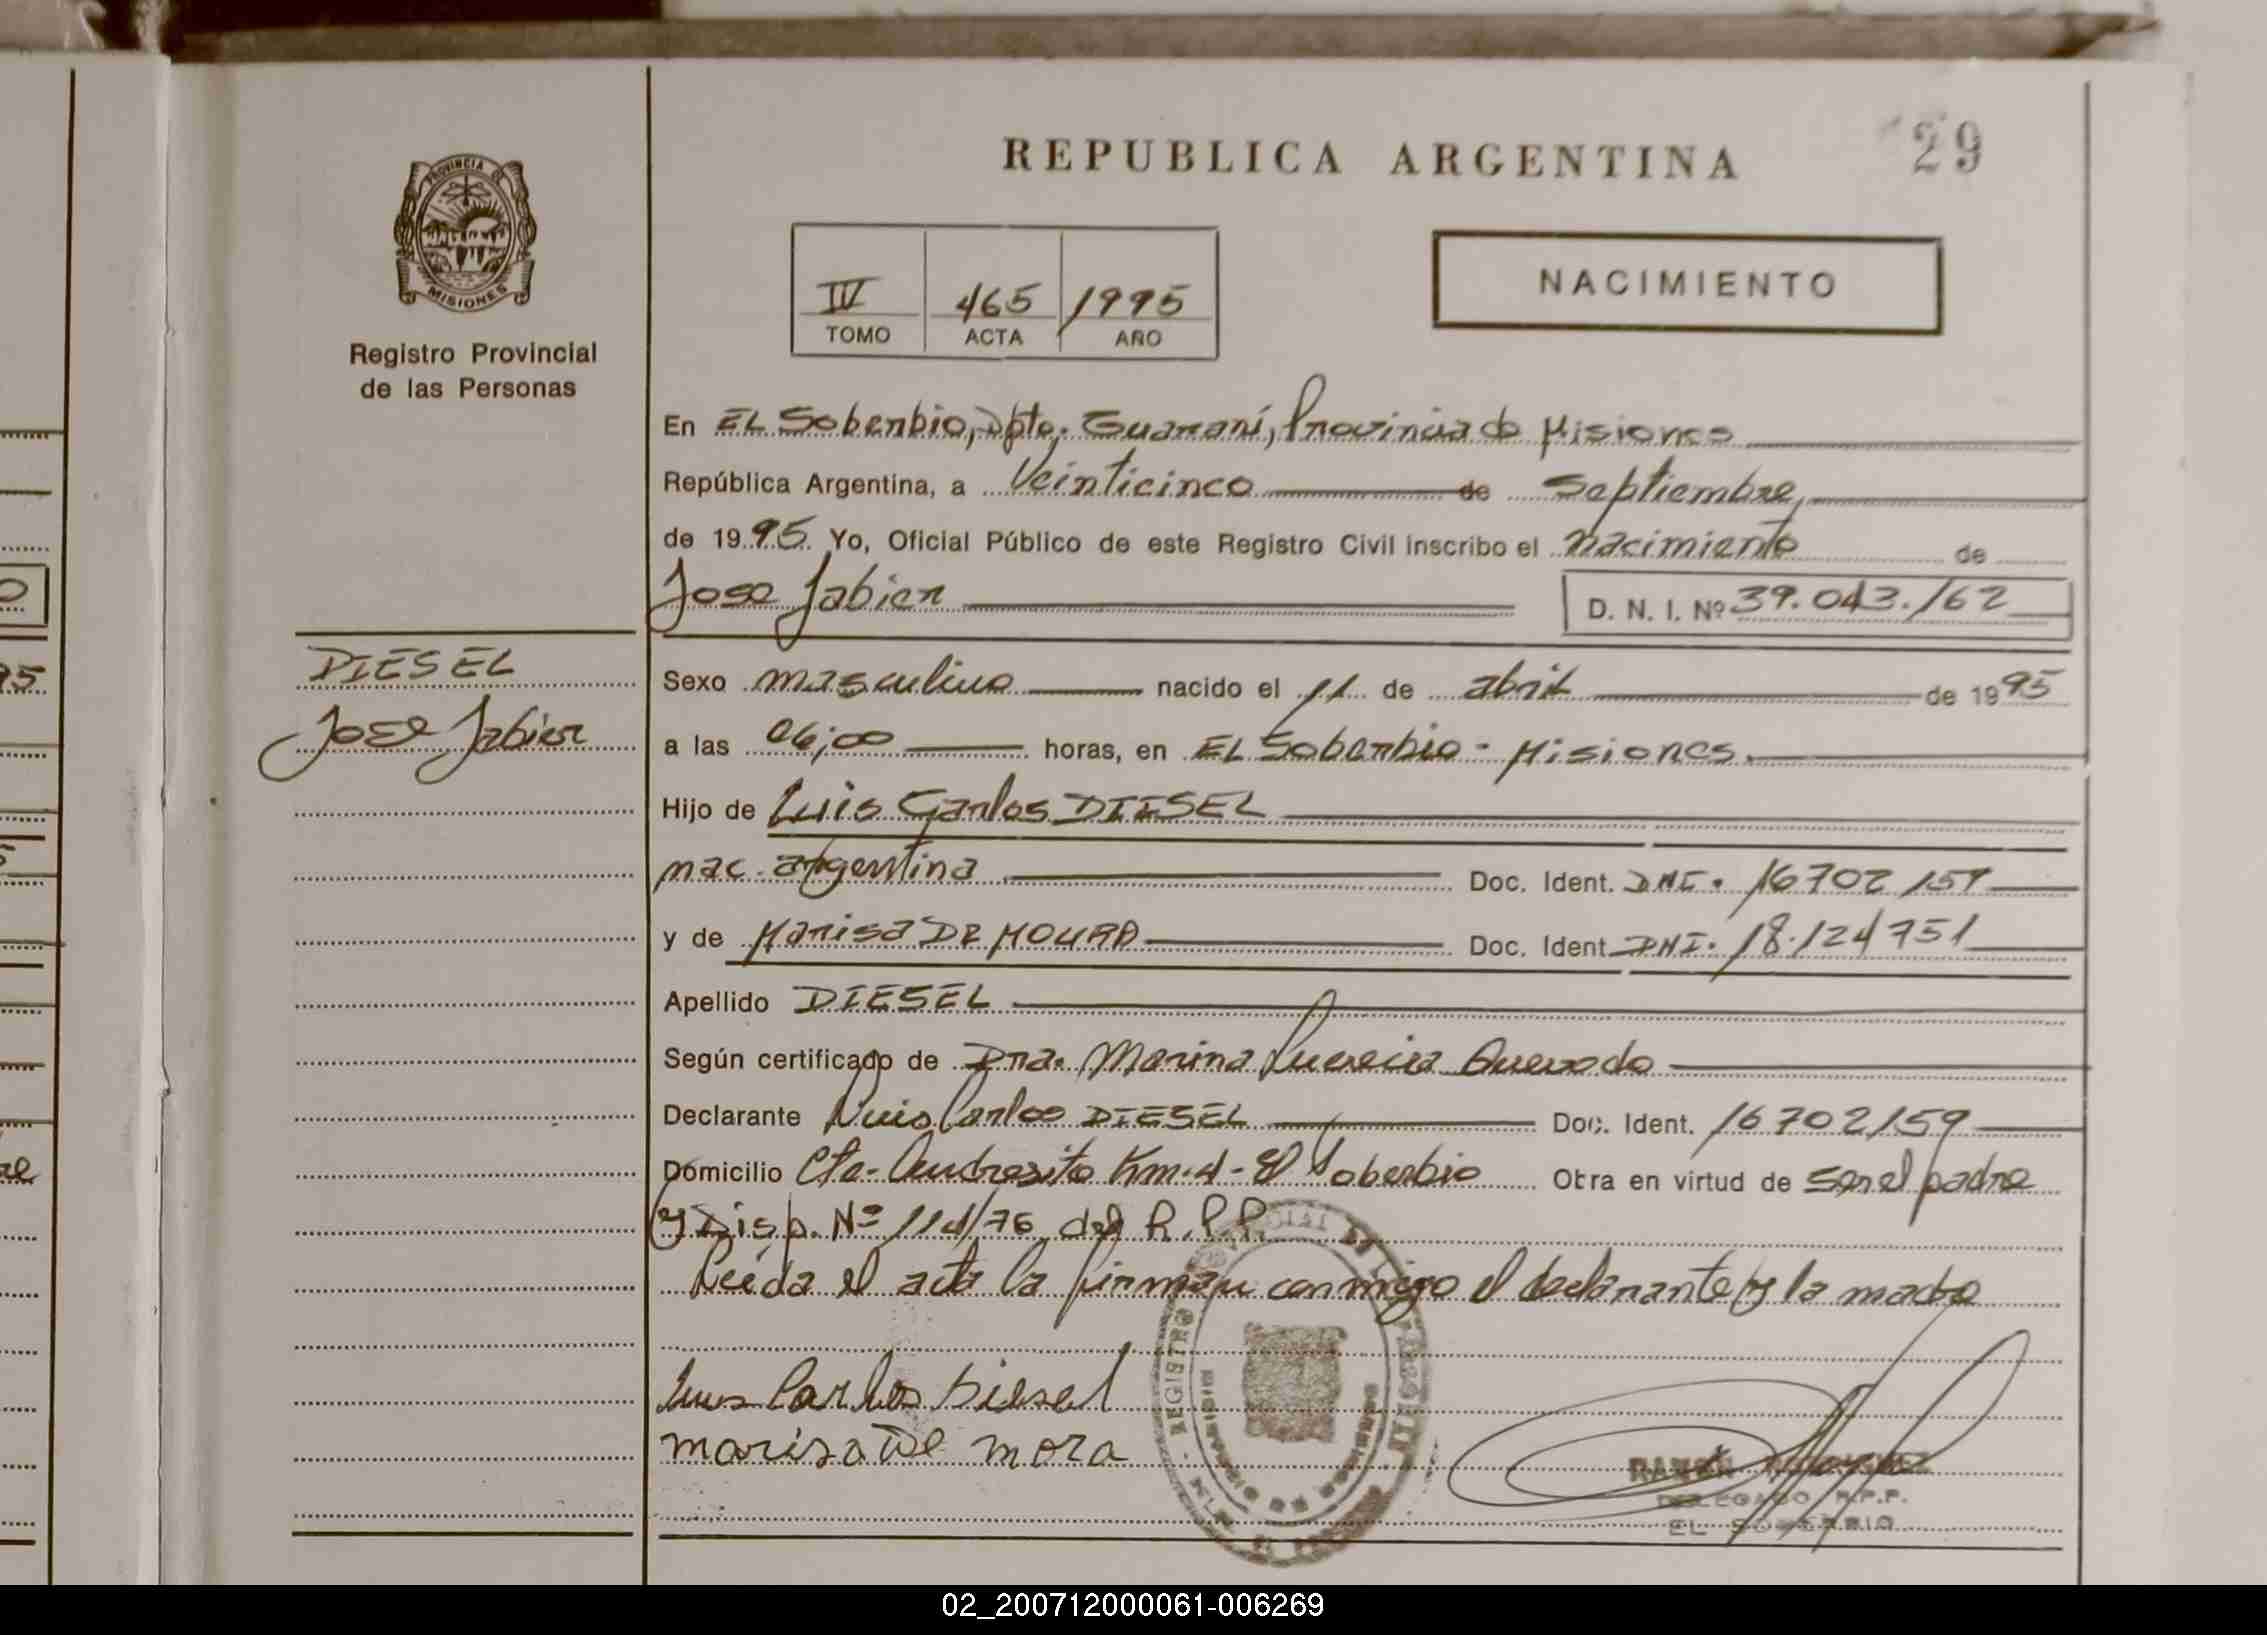 REPUBLICA ARGENTINA
29
PROVINCIA DE
MISIONES
Registro Provincial
de las Personas
IV 465 1995
TOMO ACTA AÑO
NACIMIENTO
En EL Soberbio, Dpto. Guaraní, Provincia de Misiones
República Argentina, a Veinticinco de Septiembre,
de 1995 Yo, Oficial Público de este Registro Civil inscribo el nacimiento de
Jose Jabier D. N. I. Nº 39.043.162
DIESEL
Jose Jabier
Sexo masculino nacido el 11 de abril de 1995
a las 06;00 horas, en EL Soberbio - Misiones.
Hijo de Luis Carlos DIESEL
nac. argentina Doc. Ident. DNI. 16702159
y de Marisa DE MOURA Doc. Ident. DNI. 18.124751
Apellido DIESEL
Según certificado de Dra. Marina Lucrecia Quevedo
Declarante Luis Carlos DIESEL Doc. Ident. 16702159
Domicilio Cte. Andresito Km.4 - El Soberbio Obra en virtud de ser el padre
y Disp. Nº 114/76 del R.P.P.
Leída el acta la firman conmigo el declarante y la madre
Luis Carlos Diesel
marisa de mora
REGISTRO
DELEGADO R.P.P.
EL SOBERBIO
02_200712000061-006269